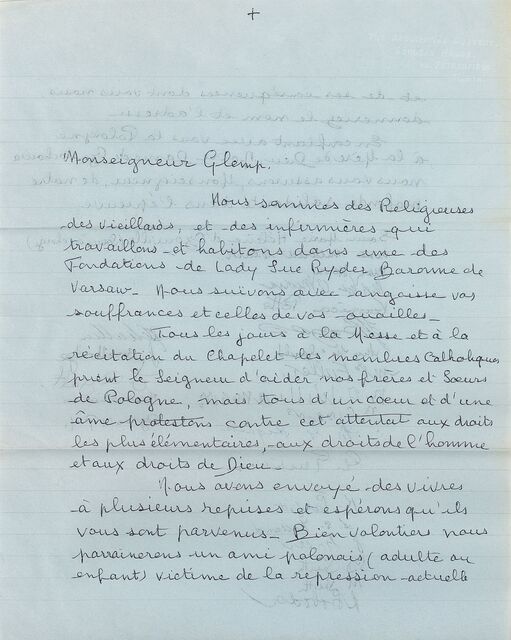 +
Monseigneur Glemp.
Nous sommes des Religieuses
des vieillards, et des infirmières qui
travaillons et habitons dans une des
Fondations de Lady Sue Ryder Baronne de
Varsaw. Nous suivons avec angoisse vos
souffrances et celles de vos ouailles.
Tous les jours à la Messe et à la
récitation du Chapelet les membres Catholiques
prient le Seigneur d'aider nos frères et Soeurs
de Pologne, mais tous d'un coeur et d'une
âme protestons contre cet attentat aux droits
les plus élémentaires, aux droits de l'homme
et aux droits de Dieu.
Nous avons envoyé des vivres
à plusieurs reprises et espérons qu'ils
vous sont parvenus. Bien volontiers nous
parrainerons un ami polonais (adulte ou
enfant) victime de la repression actuelle